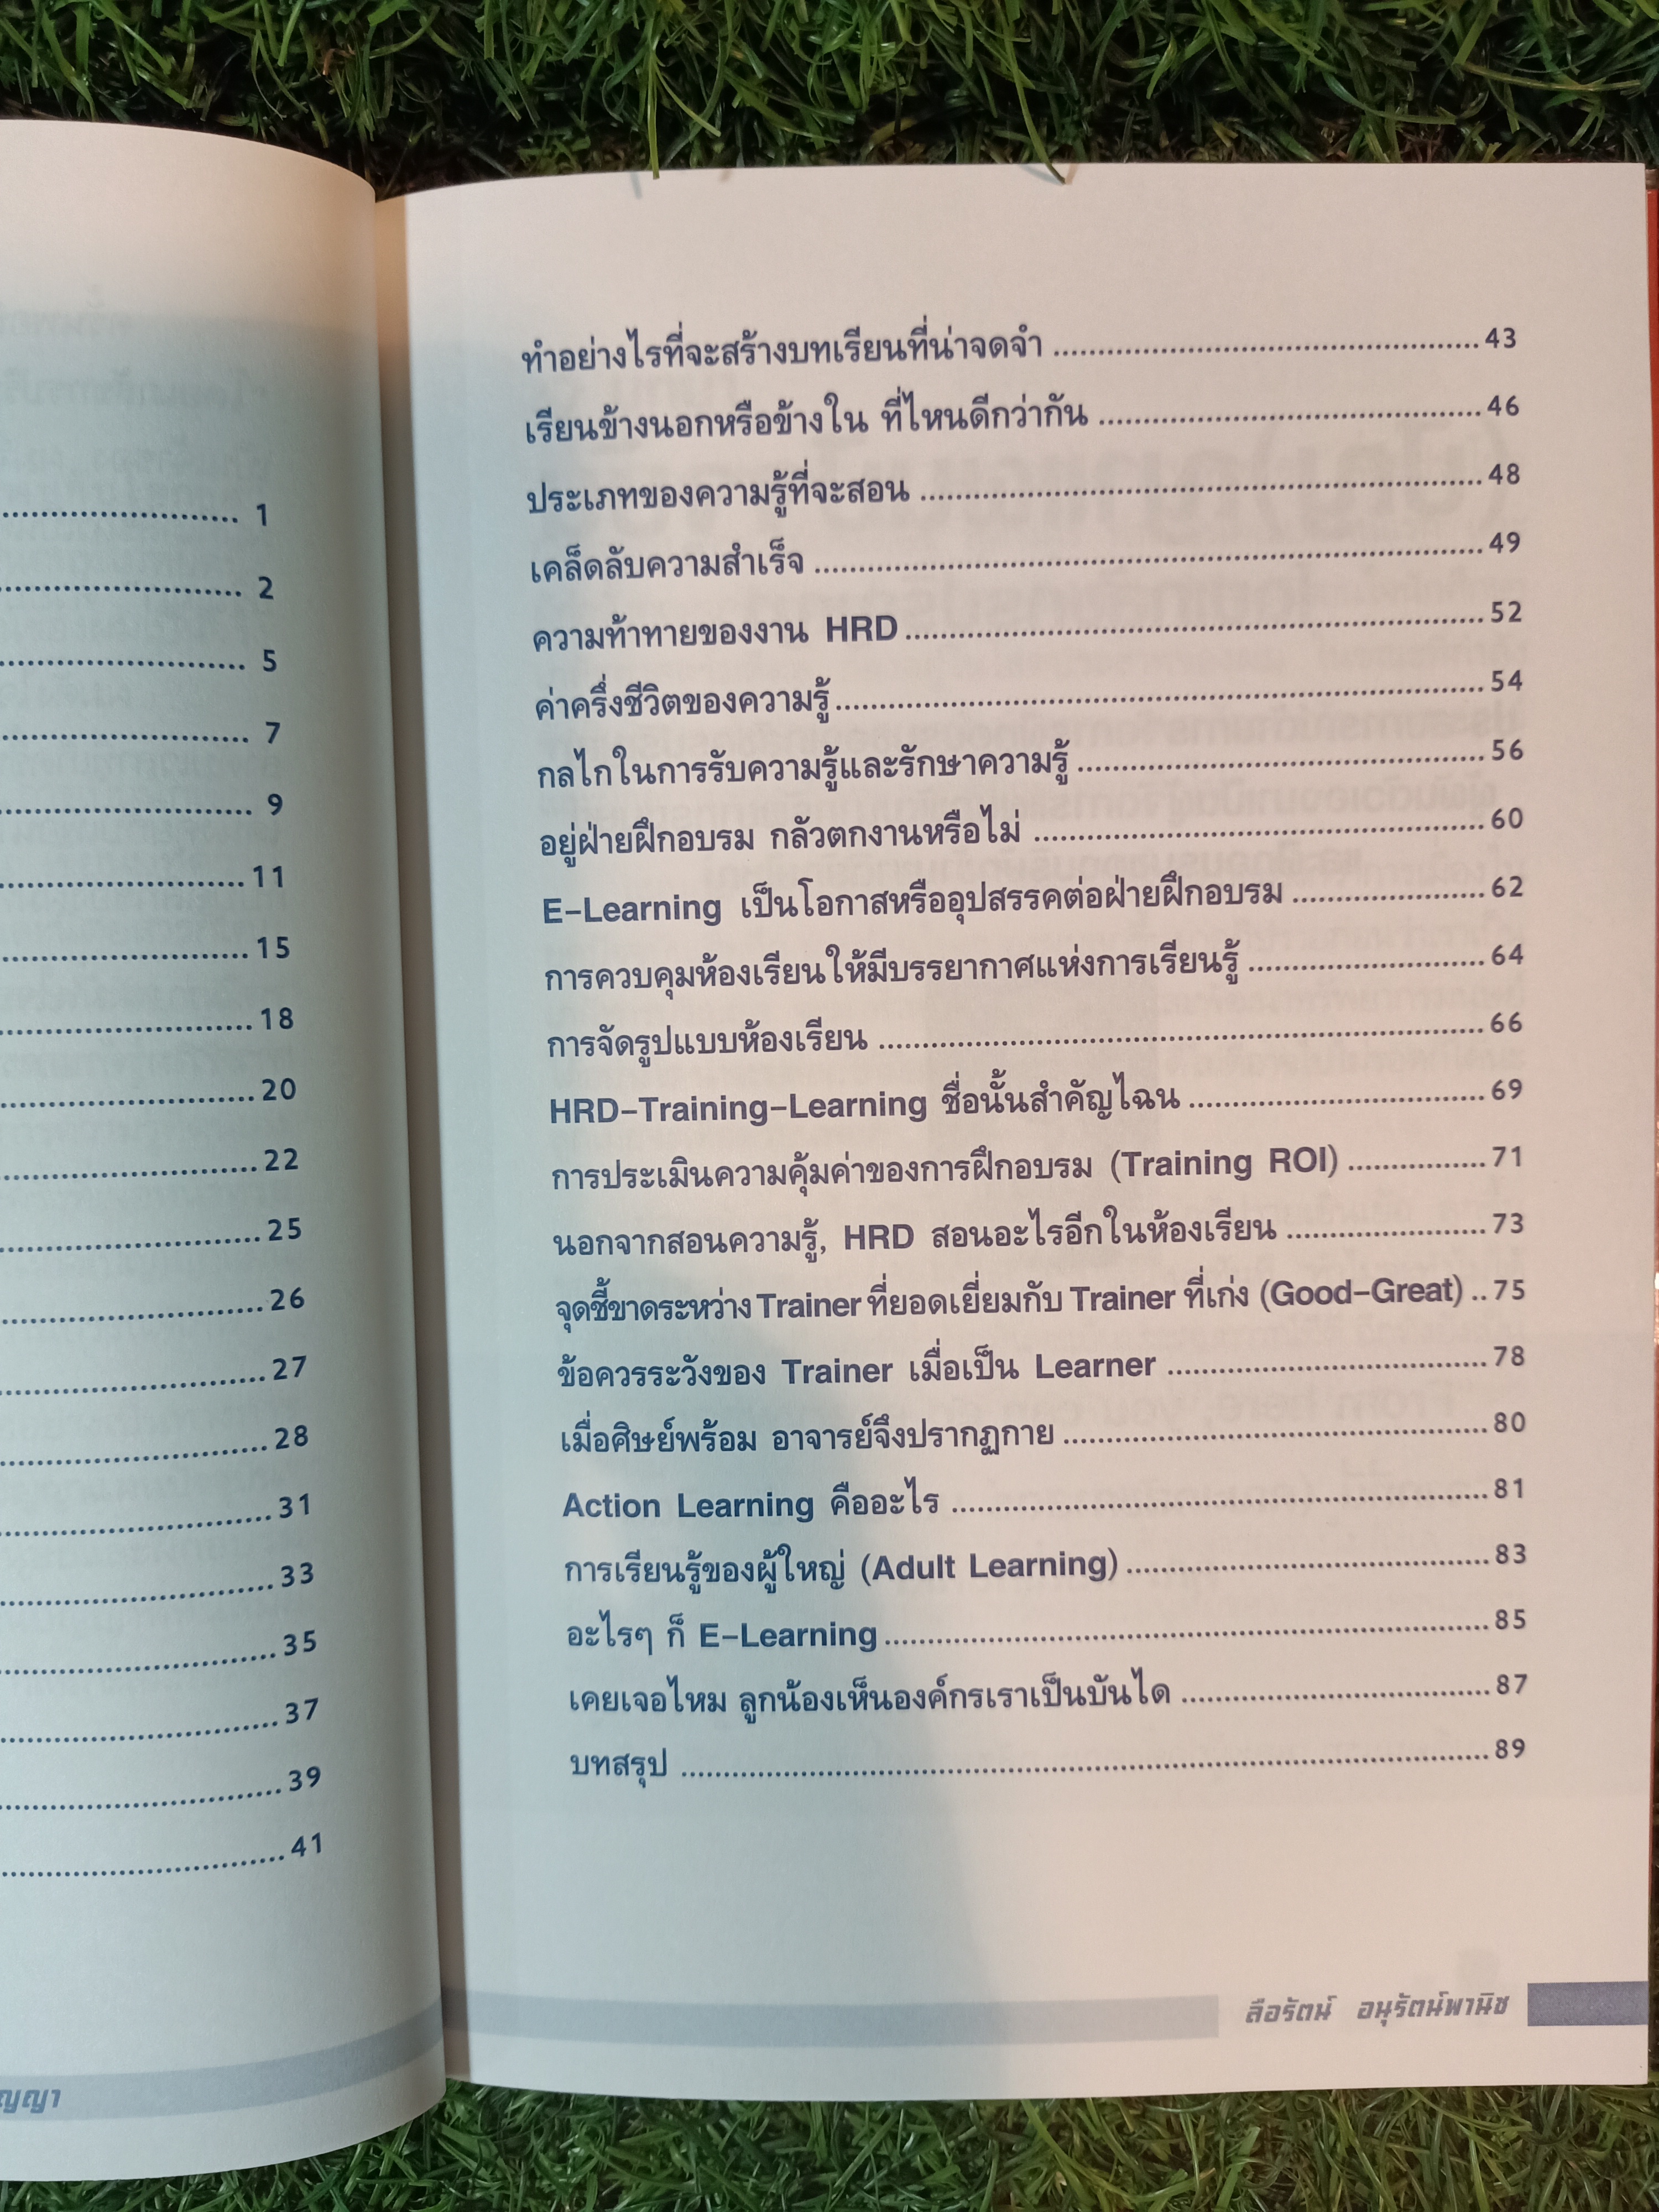 1
2
5
7
9
11
15
18
20
22
25
26
27
28
31
33
35
37
39
41
ทำอย่างไรที่จะสร้างบทเรียนที่น่าจดจำ 43
เรียนข้างนอกหรือข้างใน ที่ไหนดีกว่ากัน 46
ประเภทของความรู้ที่จะสอน 48
เคล็ดลับความสำเร็จ 49
ความท้าทายของงาน HRD 52
ค่าครึ่งชีวิตของความรู้ 54
กลไกในการรับความรู้และรักษาความรู้ 56
อยู่ฝ่ายฝึกอบรม กลัวตกงานหรือไม่ 60
E-Learning เป็นโอกาสหรืออุปสรรคต่อฝ่ายฝึกอบรม 62
การควบคุมห้องเรียนให้มีบรรยากาศแห่งการเรียนรู้ 64
การจัดรูปแบบห้องเรียน 66
HRD-Training-Learning ชื่อนั้นสำคัญไฉน 69
การประเมินความคุ้มค่าของการฝึกอบรม (Training ROI) 71
นอกจากสอนความรู้, HRD สอนอะไรอีกในห้องเรียน 73
จุดชี้ขาดระหว่าง Trainer ที่ยอดเยี่ยมกับ Trainer ที่เก่ง (Good-Great) 75
ข้อควรระวังของ Trainer เมื่อเป็น Learner 78
เมื่อศิษย์พร้อม อาจารย์จึงปรากฏกาย 80
Action Learning คืออะไร 81
การเรียนรู้ของผู้ใหญ่ (Adult Learning) 83
อะไรๆ ก็ E-Learning 85
เคยเจอไหม ลูกน้องเห็นองค์กรเราเป็นบันได 87
บทสรุป 89
ลือรัตน์ อนุรัตน์พานิช